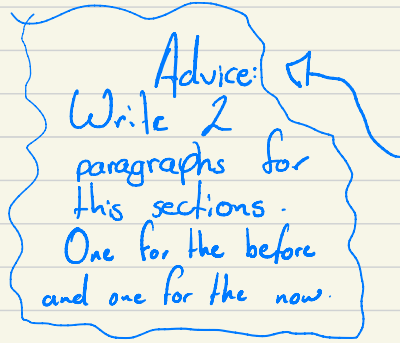 Advice:
Write 2
paragraphs for
this sections.
One for the before
and one for the now.